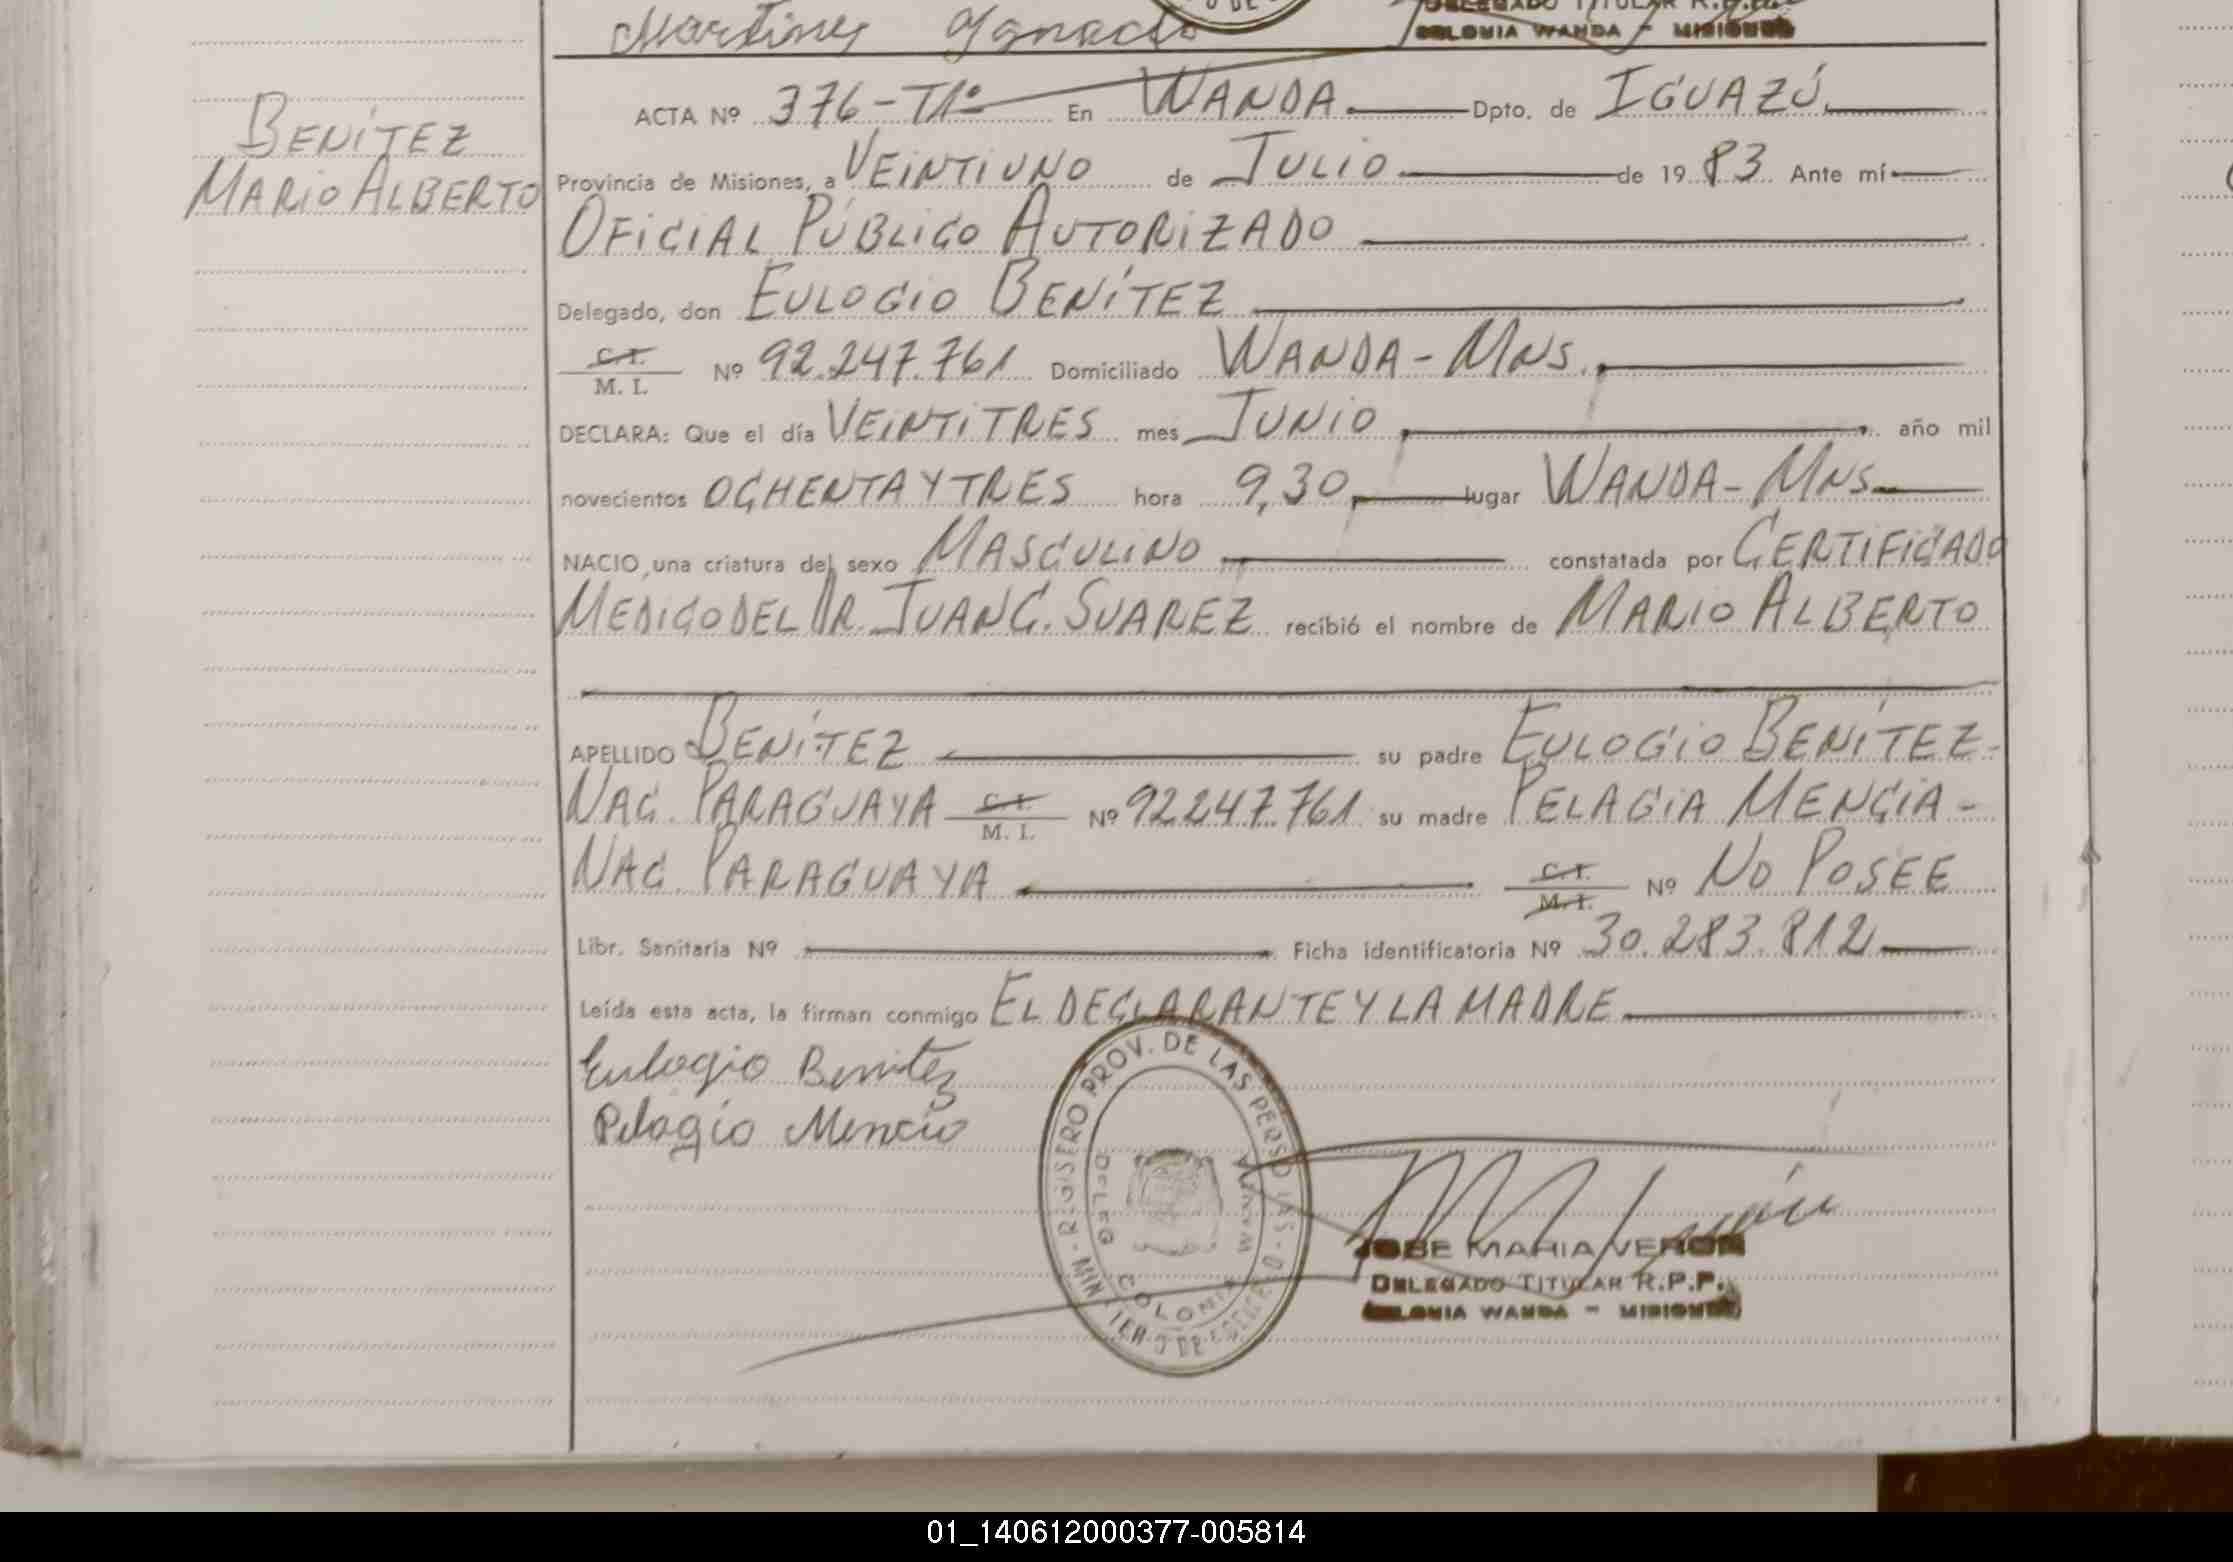 Martinez Ignacio
DELEGADO TITULAR R.P.P.
COLONIA WANDA - MISIONES
BENÍTEZ
MARIO ALBERTO
ACTA Nº 376-T1º En WANDA. Dpto. de IGUAZÚ.
Provincia de Misiones, a VEINTIUNO de JULIO de 1983. Ante mí
OFICIAL PÚBLICO AUTORIZADO
Delegado, don EULOGIO BENÍTEZ
C. I.
M. I. Nº 92.247.761 Domiciliado WANDA - MNS.
DECLARA: Que el día VEINTITRES mes JUNIO año mil
novecientos OCHENTA Y TRES hora 9,30, lugar WANDA - MNS
NACIO, una criatura del sexo MASCULINO constatada por CERTIFICADO
MEDICO DEL DR. JUAN C. SUAREZ recibió el nombre de MARIO ALBERTO
APELLIDO BENÍTEZ su padre EULOGIO BENÍTEZ-
NAC. PARAGUAYA C. I. M. I. Nº 92247.761 su madre PELAGIA MENCIA-
NAC. PARAGUAYA C. I. M. I. Nº NO POSEE
Libr. Sanitaria Nº Ficha identificatoria Nº 30.283.812
Leída esta acta, la firman conmigo EL DECLARANTE Y LA MADRE
Eulogio Benitez
Pelagio Mencio
REGISTRO PROV. DE LAS PERSONAS
DELEG COLONIA WANDA
JOSE MARIA VERON
DELEGADO TITULAR R.P.P.
COLONIA WANDA - MISIONES
01_140612000377-005814